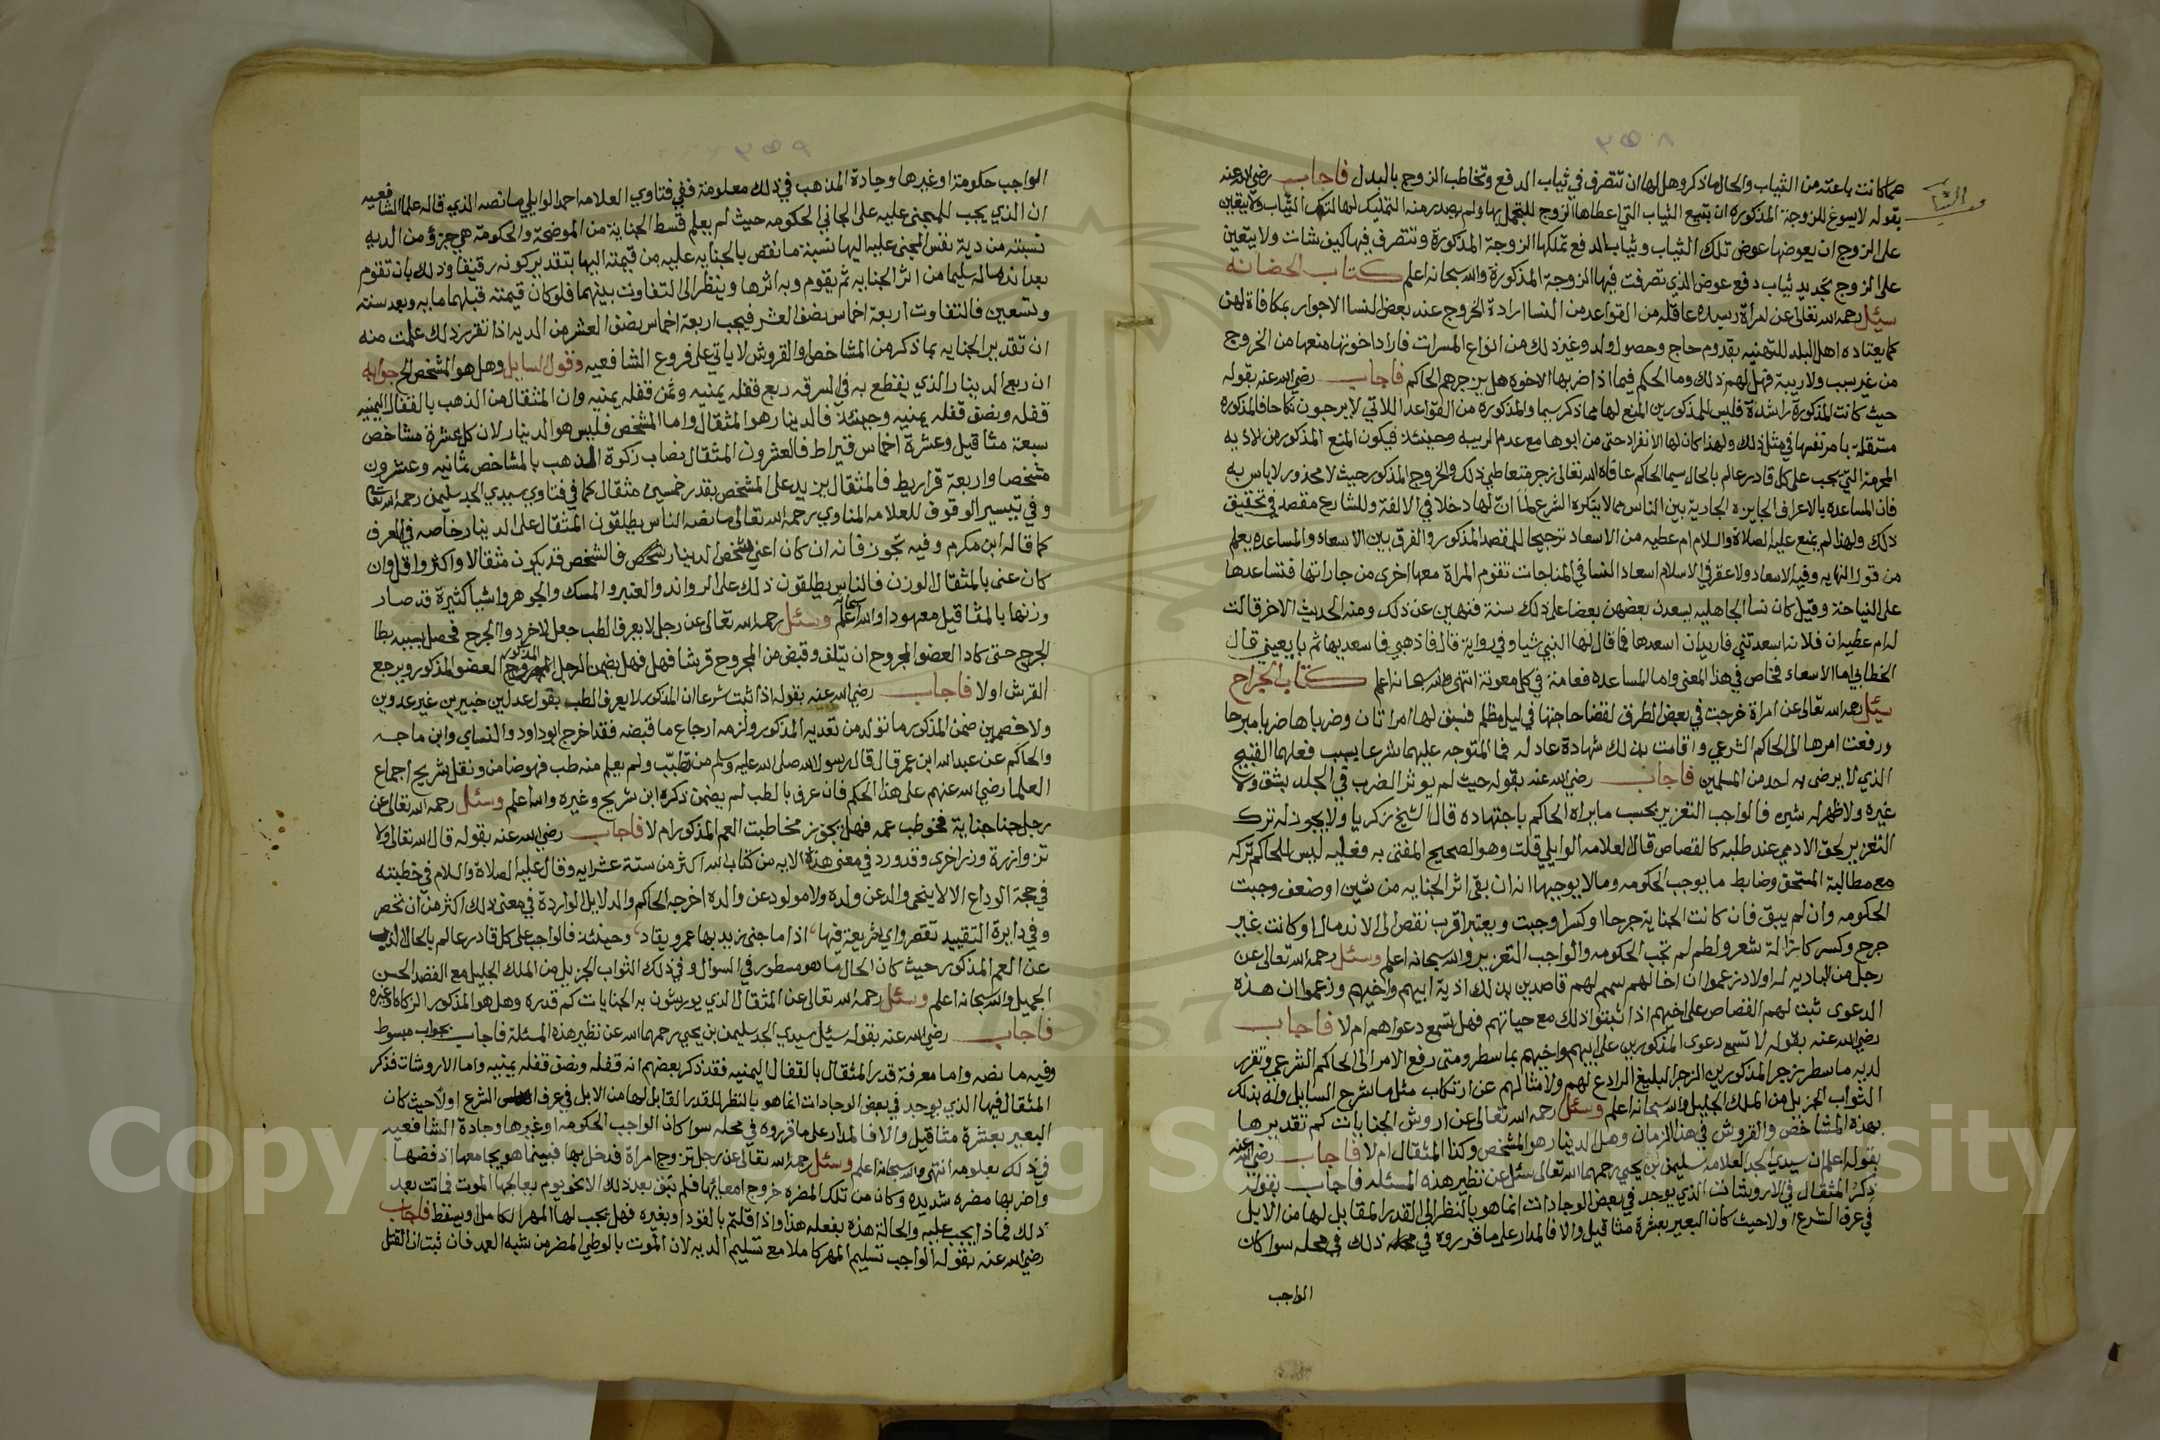 ٣٥٨
عما كانت باعته من الثياب والحال ما ذكر وهل لها ان تتصرف في ثياب الدفع وتخاطب الزوج بالبدل فاجاب رضي الله عنه
بقوله لا يسوغ للزوجة المذكورة ان تبيع الثياب التي اعطاها الزوج للتجمل بها ولم يصدر منه التمليك لها لتلك الثياب ولا يتعين
على الزوج ان يعوضها عوض تلك الثياب وثياب الدفع تملكها الزوجة المذكورة وتتصرف فيها كيف شات ولا يتعين
على الزوج تجديد ثياب دفع عوض الذي تصرفت فيها الزوجة المذكورة والله سبحانه اعلم كتاب الحضانه
سئل رحمه الله تعالى عن امراة رسيده عاقله من القواعد من النسا ارادة الخروج عند بعض النسا الاجوار مكافاة لهن
كما يعتاده اهل البلد للتهنيه بقدوم حاج وحصول ولد وغير ذلك من انواع المسرات فاراد اخوتها منعها من الخروج
من غير سبب ولا ريبة فهل لهم ذلك وما الحكم فيما اذا ضربها الاخوه هل يزجرهم الحاكم فاجاب رضي الله عنه بقوله
حيث كانت المذكورة راشدة فليس للمذكورين المنع لها مما ذكر سيما والمذكوره من القواعد اللاتي لا يرجون نكاحا فالمذكوره
مستقلة بامر نفسها في مثل ذلك ولهذا كان لها الانفراد حتى من ابوها مع عدم الريبه وحينئذ فيكون المنع المذكور من لاذيه
المحرمة التي يجب على كل قادر عالم بالحال سيما الحاكم عافاه الله تعالى زجر متعاطي ذلك والخروج المذكور حيث لا محذور لا باس به
فان المساعده بالاعراف الجايزه الجارية بين الناس مما لا ينكره الشرع لما ان لها دخلا في الالفة وللشارع مقصد في تحقيق
ذلك ولهذا لم يمنع عليه الصلاة والسلام ام عطيه من الاسعاد ترجيحا للمقصد المذكور والفرق بين الاسعاد والمساعده يعلم
من قول النهايه وفيه لا اسعاد ولا عقر في الاسلام اسعاد النسا في المناحات تقوم المراة معها اخرى من جاراتها فتساعدها
على النياحة وقيل كان نسا الجاهليه يسعدن بعضهن بعضا على ذلك سنة فنهين عن ذلك ومنه الحديث الاخر قالت
له ام عطيه ان فلانه اسعدتني فاريد ان اسعدها فما قال لها النبي شيا وفي رواية قال فاذهبي فاسعديها ثم بايعيني قال
الخطابي اما الاسعاد فخاص في هذا المعنى واما المساعده فعامة في كل معونة انتهى والله سبحانه اعلم كتاب الجراح
سئل رحمه الله تعالى عن امراة خرجت في بعض الطرق لقضا حاجتها في ليل مظلم فسبق لها امراتان وضرباها ضربا مبرحا
ورفعت امرها الى الحاكم الشرعي واقامت بذلك شهادة عادله فما المتوجه عليهما شرعا بسبب فعلهما القبيح
الذي لا يرضى به احد من المسلمين فاجاب رضي الله عنه بقوله حيث لم يوثر الضرب في الجلد بشق ولا
غيره ولا ظهر له شين فالواجب التعزير بحسب ما يراه الحاكم باجتهاده قال الشيخ زكريا ولا يجوز له ترك
التعزير لحق الادمي عند طلبه كالقصاص قال العلامه الوايلي قلت وهو الصحيح المفتى به فعليه ليس للحاكم تركه
مع مطالبة المستحق وضابط ما يوجب الحكومه وما لا يوجبها انه ان بقي اثر الجنايه من شين او ضعف وجبت
الحكومه وان لم يبق فان كانت الجناية جرحا او كسرا وجبت ويعتبر اقرب نقص الى الاندمال او كانت غير
جرح وكسر كازالة شعر ولطم لم تجب الحكومه والواجب التعزير والله سبحانه اعلم وسئل رحمه الله تعالى عن
رجل من الباديه له اولاد زعموا ان اخا لهم سمم لهم قاصدين بذلك اذية ابيهم واخيهم وزعموا ان هذه
الدعوى تثبت لهم القصاص على اخيهم اذا ثبتوا ذلك مع حياتهم فهل تسمع دعواهم ام لا فاجاب
رضي الله عنه بقوله لا تسمع دعوى المذكورين على ابيهم واخيهم بما سطر ومتى رفع الامر الى الحاكم الشرعي وتقرر
لديه ما سطر زجر المذكورين الزجر البليغ الرادع لهم ولامثالهم عن ارتكاب مثل ما شرح السايل وله بذلك
الثواب الجزيل من الملك الجليل والله سبحانه اعلم وسئل رحمه الله تعالى عن اروش الجنايات كم تقديرها
بهذه المشاخص والقروش في هذا الزمان وهل الدينار هو المشخص وكذا المثقال ام لا فاجاب رضي الله عنه
بقوله اعلم ان سيدي الجد العلامه سليمن بن يحيى رحمهما الله تعالى سئل عن نظير هذه المسئله فاجاب بقوله
ذكر المثقال في الاروشات الذي يوجد في بعض الوجادات انما هو بالنظر الى القدر المقابل لها من الابل
في عرف الشرع اولا حيث كان البعير بعشرة مثاقيل والا فالمدار على ما قرروه في ذلك في محله سوا كان
الواجب
٣٥٩
الواجب حكومة او غيرها وجادة المذهب في ذلك معلومة ففي فتاوي العلامه احمد الوايلي ما نصه الذي قاله علما الشافعيه
ان الذي يجب للمجنى عليه على الجاني الحكومه حيث لم يعلم قسط الجناية من الموضحة والحكومة هي جزؤ من الديه
نسبته من دية نفس المجنى عليه اليها نسبة ما نقص بالجنايه عليه من قيمته اليها بتقدير كونه رقيقا وذلك بان تقوم
بعد اندماله سليما من اثر الجنايه ثم يقوم وبه اثرها وينظر الى التفاوت بينهما فلو كان قيمته قبلهما مايه وبعد ستة
وتسعين فالتفاوت اربعة اخماس نصف العشر فيجب اربعة اخماس نصف العشر من الديه اذا تقرر ذلك علمت منه
ان تقدير الجنايه بما ذكر من المشاخص والقروش لا ياتي على فروع الشافعيه وقول السايل وهل هو المشخص الخ جوابه
ان ربع الدينار الذي يقطع به في السرقه ربع قفله يمنيه وثمن قفله يمنيه وان المثقال من الذهب بالقفال اليمنيه
قفله ونصف قفله يمنيه وحينئذ فالدينار هو المثقال واما المشخص فليس هو الدينار لان كل عشرة مشاخص
سبعة مثاقيل وعشرة اخماس قيراط فالعشرون المثقال نصاب زكوة الذهب بالمشاخص ثمانيه وعشرون
مشخصا واربعة قراريط فالمثقال يزيد على المشخص بقدر خمسي مثقال كما في فتاوي سيدي الجد سليمن رحمه الله تعالى
وفي تيسير الوقوف للعلامه المناوي رحمه الله تعالى ما نصه الناس يطلقون المثقال على الدينار خاصه في العرف
كما قاله ابن مكرم وفيه تجوز فانه ان كان اعني شخص الدينار فالشخص قد يكون مثقالا واكثر واقل وان
كان عنى بالمثقال الوزن فالناس يطلقون ذلك على الرواند والعنبر والمسك والجوهر واشيا كثيرة قد صار
وزنها بالمثاقيل معهودا والله اعلم وسئل رحمه الله تعالى عن رجل لا يعرف الطب جعل لاخر دوا الجرح فحصل بسببه بطا
الجرح حتى كاد العضو المجروح ان يتلف وقبض من المجروح قرشا فهل فهل يضمن الرجل المذكور العضو المذكور ويرجع
القرش اولا فاجاب رضي الله عنه بقوله اذا ثبت شرعا ان المذكور لا يعرف الطب بقول عدلين خبيرين غير عدوين
ولا خصمين ضمن المذكور ما تولد من تعديه المذكور ولزمه ارجاع ما قبضه فقد اخرج ابو داود والنساي وابن ماجه
والحاكم عن عبد الله ابن عمر قال قال رسول الله صلى الله عليه وسلم من تطبب ولم يعلم منه طب فهو ضامن ونقل شريح اجماع
العلما رضي الله عنهم على هذا الحكم فان عرف بالطب لم يضمن ذكره ابن شريح وغيره والله اعلم وسئل رحمه الله تعالى عن
رجل جنا جناية فخوطب عمه فهل يجوز مخاطبت العم المذكور ام لا فاجاب رضي الله عنه بقوله قال الله تعالى ولا
تزر وازرة وزر اخرى وقد ورد في معنى هذه الايه من كتاب الله اكثر من ستة عشر ايه وقال عليه الصلاة والسلام في خطبته
في حجة الوداع الا لا يجني والد عن ولده ولا مولود عن والده اخرجه الحاكم والدلايل الواردة في معنى ذلك اكثر من ان تحصر
وفي دايرة التقييد تقصر واي شريعة فيها اذا ما جنى زيد بها عمرو يقاد وحينئذ فالواجب على كل قادر عالم بالحال الذب
عن العم المذكور حيث كان الحال ما هو مسطور في السوال وفي ذلك الثواب الجزيل من الملك الجليل مع القصد الحسن
الجميل والله سبحانه اعلم وسئل رحمه الله تعالى عن المثقال الذي يورشون به الجنايات كم قدره وهل هو المذكور الزكاة او غيره
فاجاب رضي الله عنه بقوله سئل سيدي الجد سليمن بن يحيى رحمهما الله عن نظير هذه المسئلة فاجاب بجواب مبسوط
وفيه ما نصه واما معرفة قدر المثقال بالقفال اليمنيه فقد ذكر بعضهم انه قفله ونصف قفله يمنيه واما الاروشات فذكر
المثقال فيها الذي يوجد في بعض الوجادات انما هو بالنظر للقدر المقابل لها من الابل في عرف الشرع اولا حيث كان
البعير بعشرة مثاقيل والا فالمدار على ما قرروه في محله سوا كان الواجب الحكومه او غيرها وجادة الشافعيه
في ذلك معلومه انتهى والله سبحانه اعلم وسئل رحمه الله تعالى عن رجل تزوج امراة فدخل بها فبينما هو يجامعها اذ فضها
واضر بها مضره شديده وكان من تلك المضره خروج امعايها فلم تبق بعد ذلك الا نحو يوم يعالجها الموت فماتت بعد
ذلك فماذا يجب عليه والحالة هذه بفعله هذا واذا قلتم بالقود او بغيره فهل يجب لها المهر الكامل او يسقط فاجاب
رضي الله عنه بقوله الواجب تسليم المهر كاملا مع تسليم الديه لان الموت بالوطي المضر من شبه العمد فان ثبت ان القتل
Copyright © King Saud University
1957